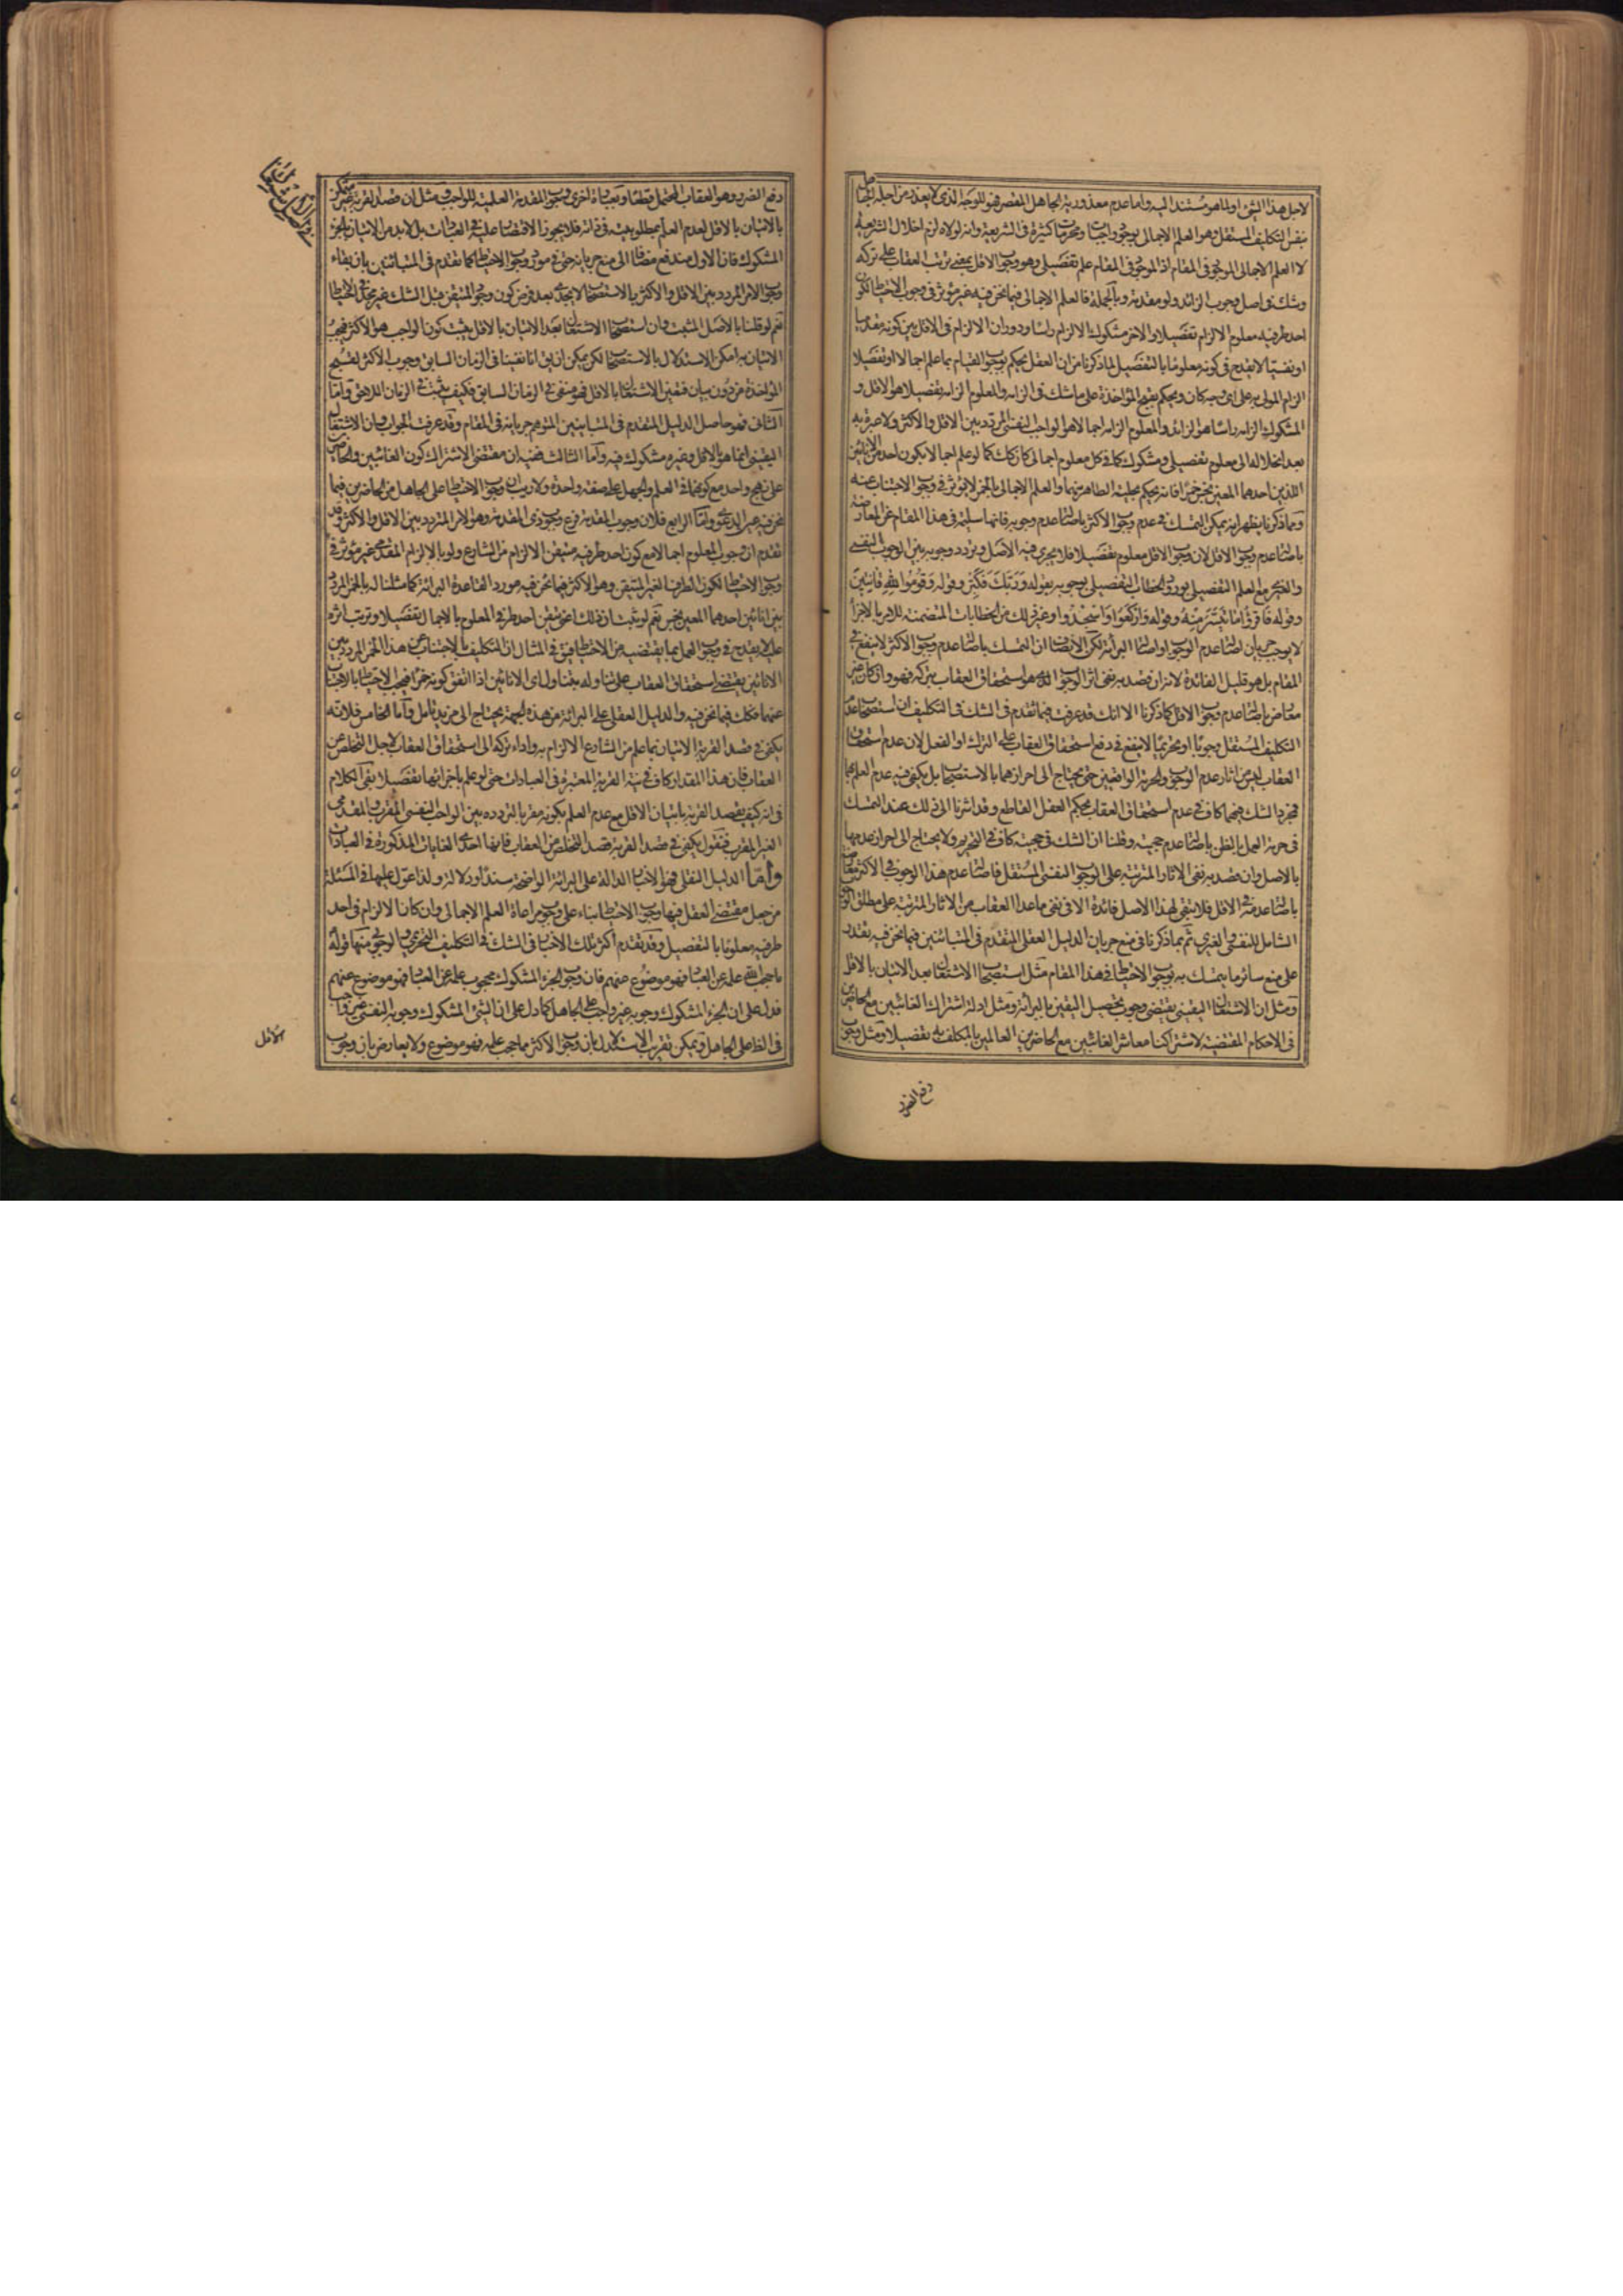 لاجل هذا الشئ او لما هو مستند اليه واما عدم معذورية الجاهل المقصر فهو للوجه الذى لا يعذر من اجله الجاهل
بنفس التكليف المستقل وهو العلم الاجمالى بوجود واجبات ومحرمات كثيرة فى الشريعة وانه لولاه لزم اخلال الشريعة
لا العلم الاجمالى الموجود فى المقام اذ الموجود فى المقام علم تفصيلى وهو وجوب الاقل بمعنى ترتب العقاب على تركه
وشك فى اصل وجوب الزائد ولو مقدمة وبالجملة فالعلم الاجمالى فيما نحن فيه غير مؤثر فى وجوب الاحتياط لكون
احد طرفيه معلوم الالزام تفصيلا والاخر مشكوك الالزام راسا ودوران الالزام فى الاقل بين كونه مقدميا
او نفسيا لا يقدح فى كونه معلوما بالتفصيل لما ذكرنا من ان العقل يحكم بوجوب القيام بما علم اجمالا او تفصيلا
الزام المولى به على اى وجه كان ويحكم بقبح المؤاخذة على ما شك فى الزامه والمعلوم الزامه تفصيلا هو الاقل و
المشكوك الزامه راسا هو الزائد والمعلوم الزامه اجمالا هو الواجب النفسى المردد بين الاقل والاكثر ولا عبرة به
بعد انحلاله الى معلوم تفصيلى ومشكوك كما فى كل معلوم اجمالى كان كك كما لو علم اجمالا بكون احد من الانائين
اللذين احدهما المعين نجس خمرا فانه يحكم بحلية الطاهر منهما والعلم الاجمالى بالخمر لا يؤثر فى وجوب الاجتناب عنه
ومما ذكرنا يظهر انه يمكن التمسك فى عدم وجوب الاكثر باصالة عدم وجوبه فانها سليمة فى هذا المقام عن المعارضة
باصالة عدم وجوب الاقل لان وجوب الاقل معلوم تفصيلا فلا يجرى فيه الاصل وتردد وجوبه بين الوجوب النفسى
والغيرى مع العلم التفصيلى بورود الخطاب التفصيلى بوجوبه بقوله وَرَبَّكَ فَكَبِّرْ وقوله وَقُومُوا لِلَّهِ قَانِتِينَ
وقوله فَاقْرَؤُا مَا تَيَسَّرَ مِنْهُ وقوله وَارْكَعُوا وَاسْجُدُوا وغير ذلك من الخطابات المتضمنة للامر بالاجزاء
لا يوجب جريان اصالة عدم الوجوب او اصالة البرائة لكن الانصاف ان التمسك باصالة عدم وجوب الاكثر لا ينفع فى
المقام بل هو قليل الفائدة لانه ان قصد به نفى اثر الوجوب الذى هو استحقاق العقاب بتركه فهو وان كان غير
معارض باصالة عدم وجوب الاقل كما ذكرنا الا انك قد عرفت فيما تقدم فى الشك فى التكليف ان استصحاب عدم
التكليف المستقل وجوبا او تحريما لا ينفع فى دفع استحقاق العقاب على الترك او الفعل لان عدم استحقاق
العقاب ليس من اثار عدم الوجوب والحرمة الواقعيين حتى يحتاج الى احرازهما بالاستصحاب بل يكفى فيه عدم العلم بهما
فمجرد الشك فيهما كاف فى عدم استحقاق العقاب بحكم العقل القاطع وقد اشرنا الى ذلك عند التمسك
فى حرمة العمل بالظن باصالة عدم حجيته وقلنا ان الشك فى حجيته كاف فى التحريم ولا يحتاج الى احراز عدمها
بالاصل وان قصد به نفى الاثار المترتبة على الوجوب النفسى المستقل فاصالة عدم هذا الوجوب فى الاكثر معارضة
باصالة عدمه فى الاقل فلا تبقى لهذا الاصل فائدة الا فى نفى ما عدا العقاب من الاثار المترتبة على مطلق الوجوب
الشامل للنفسى والغيرى ثم بما ذكرنا فى منع جريان الدليل العقلى المتقدم فى المتباينين فيما نحن فيه تقدر
على منع سائر ما يتمسك به لوجوب الاحتياط فى هذا المقام مثل استصحاب الاشتغال بعد الاتيان بالاقل
ومثل ان الاشتغال اليقينى يقتضى وجوب تحصيل اليقين بالبرائة ومثل ادلة اشتراك الغائبين مع الحاضرين
فى الاحكام المقتضية لاشتراكنا معاشر الغائبين مع الحاضرين العالمين بالمكلف به تفصيلا ومثل وجوب
دفع الضرر
دفع الضرر وهو العقاب المحتمل قطعا وبعبارة اخرى وجوب المقدمة العلمية للواجب ومثل ان قصد القربة غير متمكن
بالاتيان بالاقل لعدم العلم بمطلوبيته فى ذاته فلا يجوز الاقتصار عليه فى العبادات بل لابد من الاتيان بالجزء
المشكوك فان الاول مندفع مضافا الى منع جريانه حتى فى مورد وجوب الاحتياط كما تقدم فى المتباينين بان بقاء
وجوب الامر المردد بين الاقل والاكثر بالاستصحاب لا يجدى بعد فرض كون وجود المتيقن قبل الشك غير مجد فى الاحتياط
نعم لو قلنا بالاصل المثبت وان استصحاب الاشتغال بعد الاتيان بالاقل يثبت كون الواجب هو الاكثر فيجب
الاتيان به امكن الاستدلال بالاستصحاب لكن يمكن ان يق انا نفينا فى الزمان السابق وجوب الاكثر لقبح
المؤاخذة من دون بيان فتعين الاشتغال بالاقل فهو منفى فى الزمان السابق فكيف يثبت فى الزمان اللاحق واما
الثانى فهو حاصل الدليل المتقدم فى المتباينين المتوهم جريانه فى المقام وقد عرفت الجواب وان الاشتغال
اليقينى انما هو بالاقل وغيره مشكوك فيه واما الثالث ففيه ان مقتضى الاشتراك كون الغائبين والحاضرين
على نهج واحد مع كونهما فى العلم والجهل على صفة واحدة ولا ريب ان وجوب الاحتياط على الجاهل من الحاضرين فيما
نحن فيه عين الدعوى واما الرابع فلان وجوب المقدمة فرع وجوب ذى المقدمة وهو الامر المتردد بين الاقل والاكثر وقد
تقدم ان وجوب المعلوم اجمالا مع كون احد طرفيه متيقن الالزام من الشارع ولو بالالزام المقدمى غير مؤثر فى
وجوب الاحتياط لكون الطرف الغير المتيقن وهو الاكثر فيما نحن فيه مورد القاعدة البرائة كما مثلنا له بالخمر المردد
بين انائين احدهما المعين نجس نعم لو ثبت ان ذلك اعنى تيقن احد طرفى المعلوم بالاجمال تفصيلا وترتب اثره
عليه لا يقدح فى وجوب العمل بما يقتضيه من الاحتياط فيق فى المثال ان التكليف بالاجتناب عن هذا الخمر المردد بين
الانائين يقتضى استحقاق العقاب على تناوله بتناول اى الانائين اذا اتفق كونه خمرا فيجب الاحتياط بالاجتناب
عنهما فكك فيما نحن فيه والدليل العقلى على البرائة من هذه الجهة يحتاج الى مزيد تامل واما الخامس فلانه
يكفى فى قصد القربة الاتيان بما علم من الشارع الالزام به واداء تركه الى استحقاق العقاب لاجل التخلص عن
العقاب فان هذا المقدار كاف فى نية القربة المعتبرة فى العبادات حتى لو علم باجزائها تفصيلا بقى الكلام
فى انه كيف يقصد القربة باتيان الاقل مع عدم العلم بكونه مقربا لتردده بين الواجب النفسى المقرب والمقدمى
الغير المقرب فنقول يكفى فى قصد القربة قصد التخلص من العقاب فانها احدى الغايات المذكورة فى العبادات
واما الدليل النقلى فهو الاخبار الدالة على البرائة الواضحة سندا ودلالة ولذا عول عليها فى المسئلة
من جعل مقتضى العقل فيها وجوب الاحتياط بناء على وجوب مراعاة العلم الاجمالى وان كان الالزام فى احد
طرفيه معلوما بالتفصيل وقد تقدم اكثر تلك الاخبار فى الشك فى التكليف التحريمى والوجوبى منها قوله
ما حجب الله علمه عن العباد فهو موضوع عنهم فان وجوب الجزء المشكوك محجوب علمه عن العباد فهو موضوع عنهم
فدل على ان الجزء المشكوك وجوبه غير واجب على الجاهل كما دل على ان الشئ المشكوك وجوبه النفسى غير واجب
فى الظاهر على الجاهل ويمكن تقريب الاستدلال بان وجوب الاكثر مما حجب علمه فهو موضوع ولا يعارض بان وجوب
الاقل